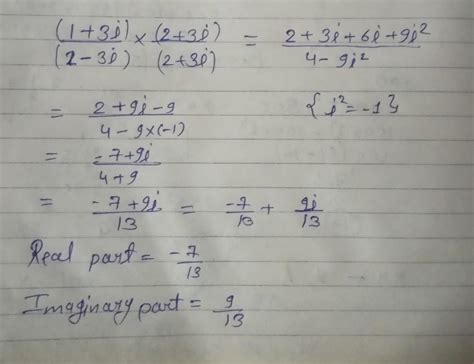 (1+3i)/(2-3i) × (2+3i)/(2+3i) = (2+3i+6i+9i²)/(4-9i²)
= (2+9i-9)/(4-9×(-1)) {i²=-1}
= (-7+9i)/(4+9)
= (-7+9i)/13 = -7/13 + 9i/13
Real part = -7/13
Imaginary part = 9/13